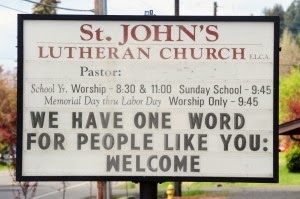 St. JOHN'S
LUTHERAN CHURCH L.L.C.A.
Pastor:
School Yr. Worship - 8:30 & 11:00 Sunday School - 9:45
Memorial Day thru Labor Day Worship Only - 9:45
WE HAVE ONE WORD
FOR PEOPLE LIKE YOU:
WELCOME